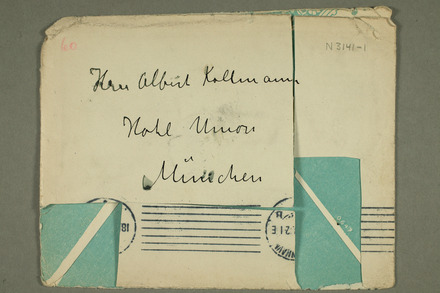 60
N3141-1
Herrn Albert Kollmann
Hotel Union
München